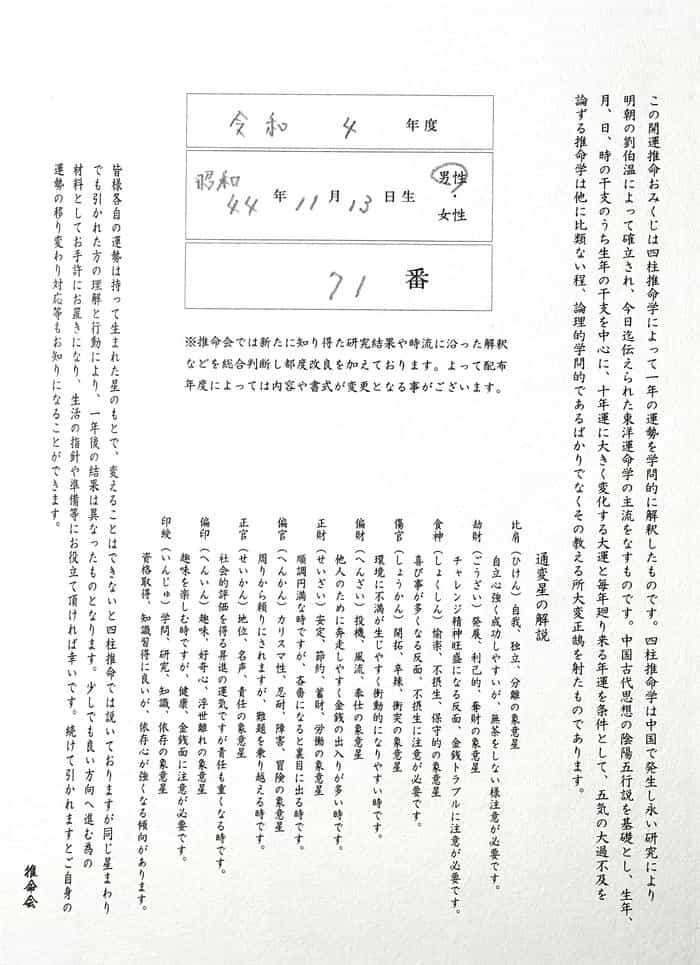 この開運推命おみくじは四柱推命学によって一年の運勢を学問的に解釈したものです。四柱推命学は中国で発生し永い研究により
明朝の劉伯温によって確立され、今日迄伝えられた東洋運命学の主流をなすものです。中国古代思想の陰陽五行説を基礎とし、生年、
月、日、時の干支のうち生年の干支を中心に、十年運に大きく変化する大運と毎年廻り来る年運を条件として、五気の大過不及を
論ずる推命学は他に比類ない程、論理的学問的であるばかりでなくその教える所大変正鵠を射たものであります。
令和 4 年度
昭和
44 年 11 月 13 日生
男性
・
女性
71 番
※推命会では新たに知り得た研究結果や時流に沿った解釈
などを総合判断し都度改良を加えております。よって配布
年度によっては内容や書式が変更となる事がございます。
通変星の解説
比肩（ひけん）自我、独立、分離の象意星
自立心強く成功しやすいが、無茶をしない様注意が必要です。
劫財（ごうざい）発展、利己的、奪財の象意星
チャレンジ精神旺盛になる反面、金銭トラブルに注意が必要です。
食神（しょくしん）愉楽、不摂生、保守的の象意星
喜び事が多くなる反面、不摂生に注意が必要です。
傷官（しょうかん）開拓、辛辣、衝突の象意星
環境に不満が生じやすく衝動的になりやすい時です。
偏財（へんざい）投機、風流、奉仕の象意星
他人のために奔走しやすく金銭の出入りが多い時です。
正財（せいざい）安定、節約、蓄財、労働の象意星
順調円満な時ですが、吝嗇になると裏目に出る時です。
偏官（へんかん）カリスマ性、忍耐、障害、冒険の象意星
周りから頼りにされますが、難題を乗り越える時です。
正官（せいかん）地位、名声、責任の象意星
社会的評価を得る昇進の運気ですが責任も重くなる時です。
偏印（へんいん）趣味、好奇心、浮世離れの象意星
趣味を楽しむ時ですが、健康、金銭面に注意が必要です。
印綬（いんじゅ）学問、研究、知識、依存の象意星
資格取得、知識習得に良いが、依存心が強くなる傾向があります。
皆様各自の運勢は持って生まれた星のもとで、変えることはできないと四柱推命では説いておりますが同じ星まわり
でも引かれた方の理解と行動により、一年後の結果は異なったものとなります。少しでも良い方向へ進む為の
材料としてお手許にお置きになり、生活の指針や準備等にお役立て頂ければ幸いです。続けて引かれますとご自身の
運勢の移り変わり対応等もお知りになることができます。
推命会